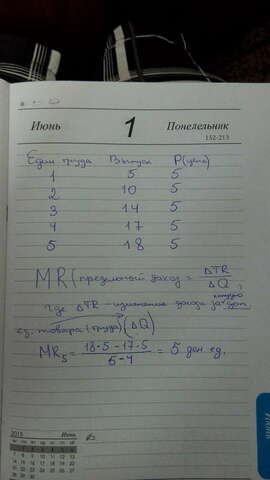 Июнь 1 Понедельник
152-213
Един труда Выпуск P(цена)
1 5 5
2 10 5
3 14 5
4 17 5
5 18 5
MR (предельный доход) = ΔTR / ΔQ,
где ΔTR - изменение дохода за
ед. товара (труда) (ΔQ)
MR5 = 18·5-17·5 / 5-4 = 5 ден ед.
2015 Июнь